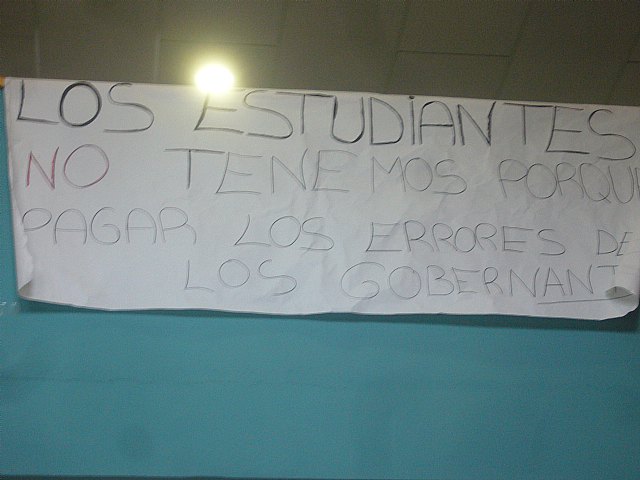 LOS ESTUDIANTES
NO TENEMOS PORQU
PAGAR LOS ERRORES DE
LOS GOBERNANT